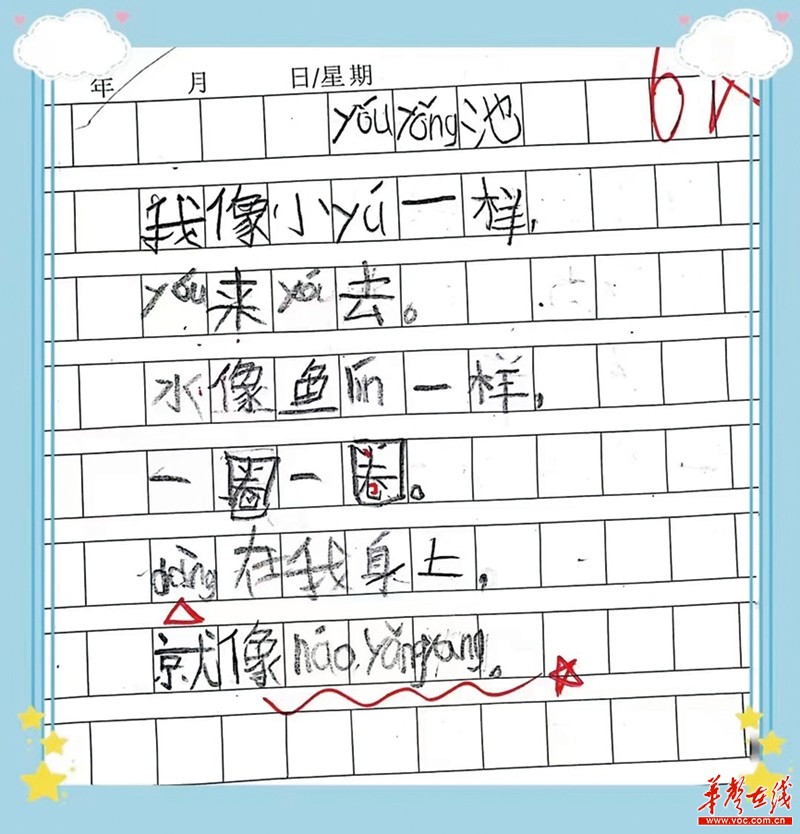 年 月 日/星期
yóu yǒng池
我像小yú一样，
yóu来yóu去。
水像鱼lín一样，
一圈一圈。
dàng在我身上，
就像náo yǎngyang。
华声在线
www.voc.com.cn